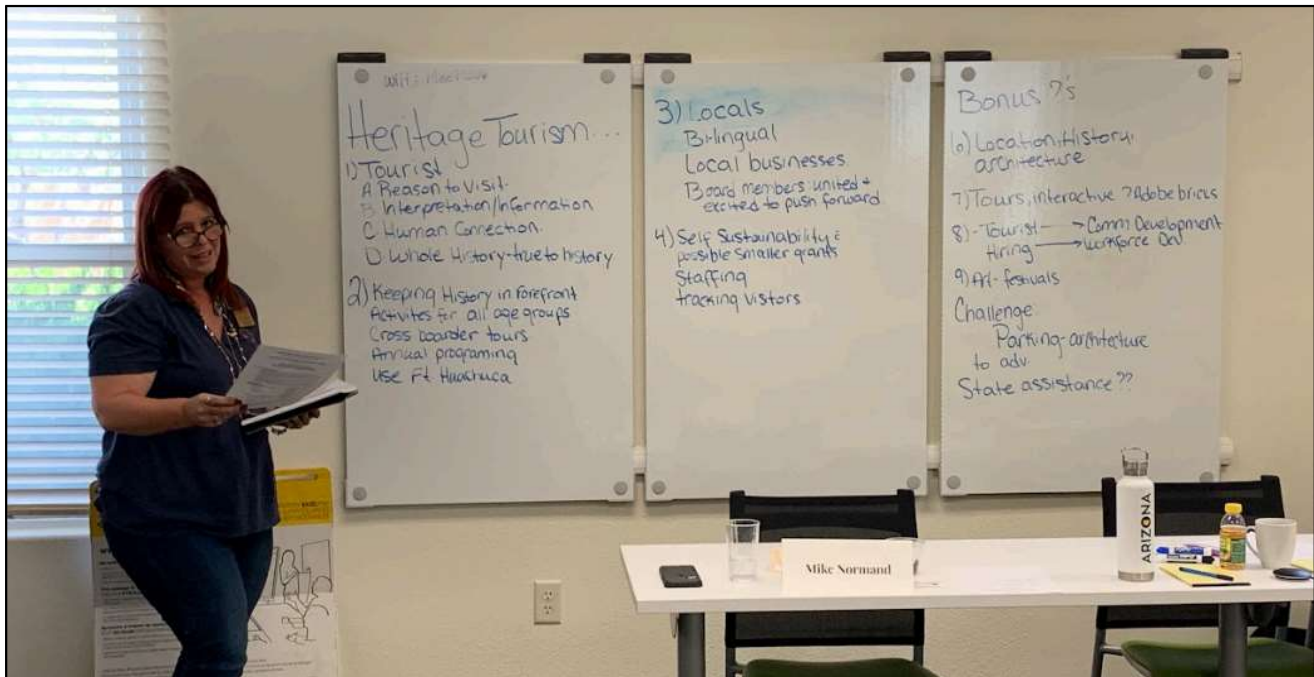 Heritage Tourism...
1) Tourist
A Reason to Visit.
B Interpretation/Information
C Human Connection.
D Whole History-true to history
2) Keeping History in Forefront
Activites for all age groups
Cross boarder tours
Annual programing
Use Ft Huachuca
3) Locals
Bilingual
Local businesses
Board members: united +
excited to push forward
4) Self Sustainability :
possible smaller grants
Staffing
tracking visitors
Bonus ?'s
6) Location, History,
architecture
7) Tours, interactive ? Adobe bricks
8) - Tourist → Comm Development
Hiring → Workforce Dev
9) Art - festivals
Challenge
Parking - architecture
to adv.
State assistance ??
Mike Normand
ARIZONA